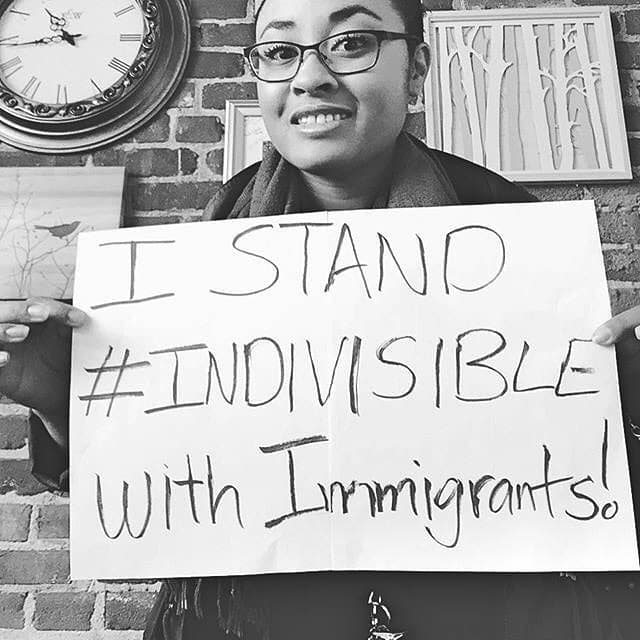 I STAND
#INDIVISIBLE
with Immigrants!